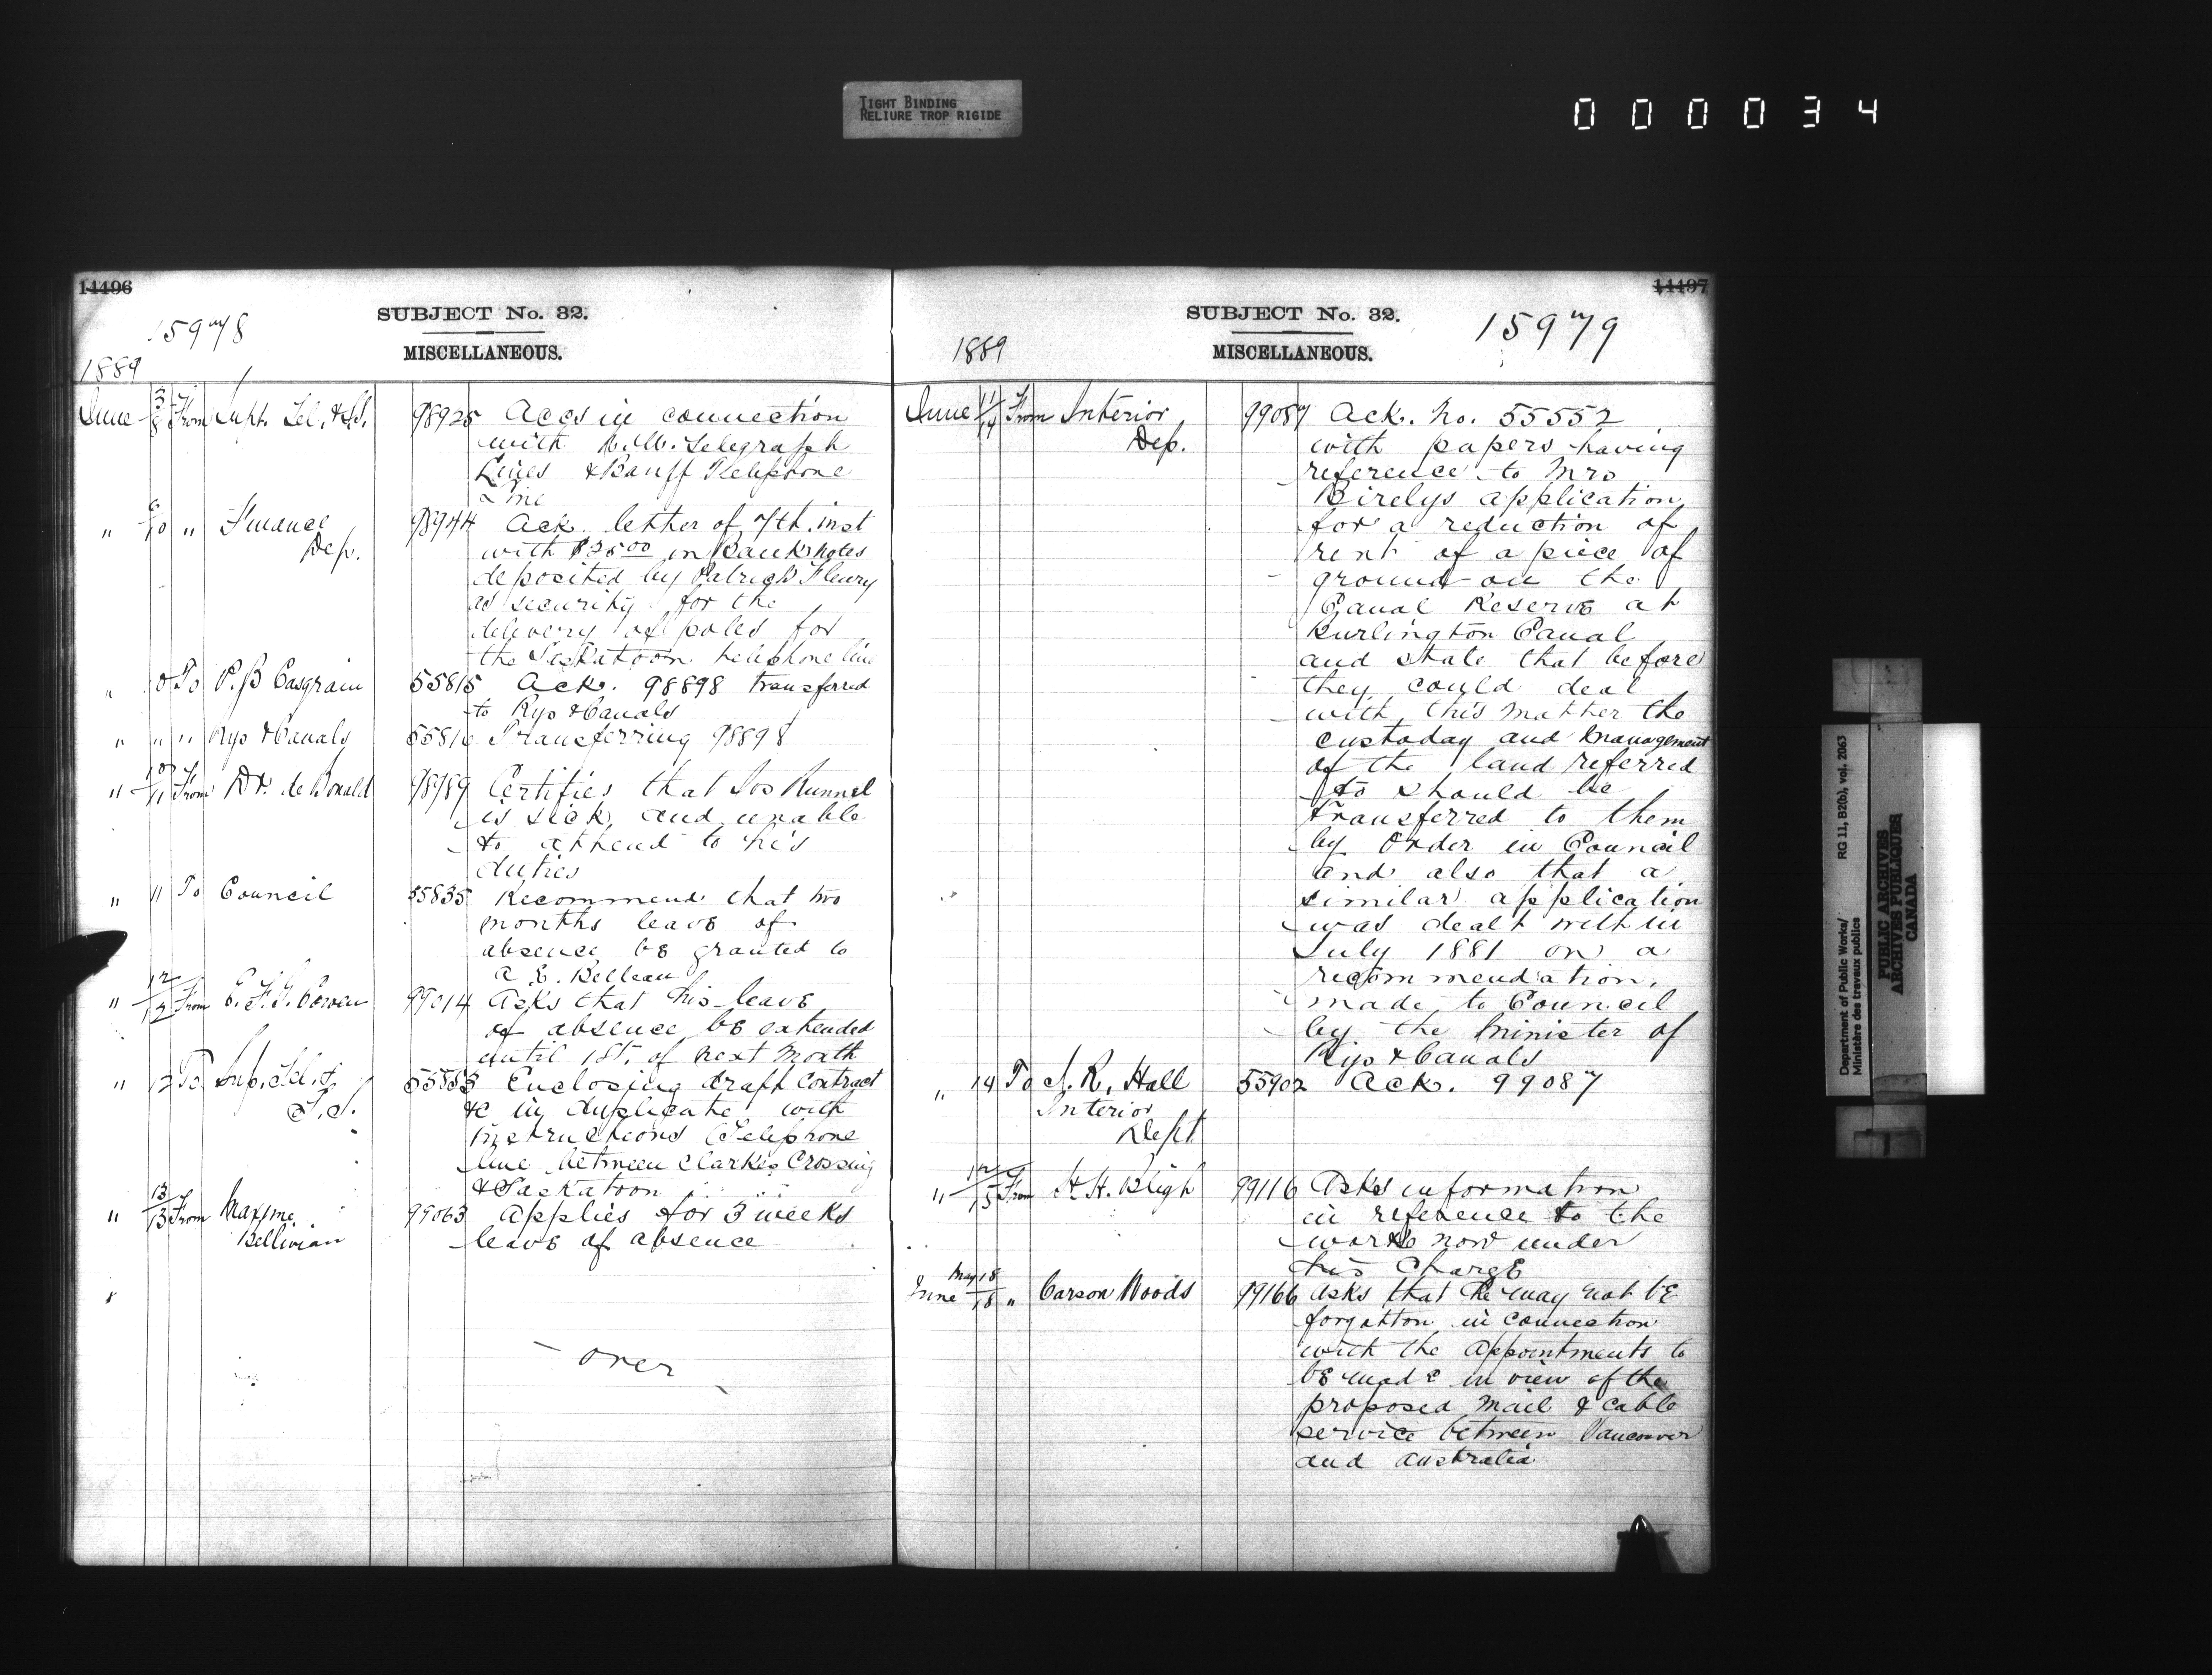 TIGHT BINDING
RELIURE TROP RIGIDE
000034
14496
SUBJECT No. 32.
15978
MISCELLANEOUS.
1889
June 3/8 From Supt. Tel. & S.S. 98925 Accs in connection
with N.W. Telegraph
Lines & Banff Telephone
Line
" 6/10 " Finance 98944 Ack. letter of 7th. inst
Dep. with $25.00 in Bank notes
deposited by Patrick Fleury
as security for the
delivery of poles for
the Saskatoon telephone line
" 10 To P. B Casgrain 55815 Ack. 98898 transferred
to Rys & Canals
" " " Rys & Canals 55816 Transferring 98898
" 10/11 From Dr. de Donald 98989 Certifies that Jos Runnel
is sick and unable
to attend to his
duties
" 11 To Council 55835 Recommend that two
months leave of
absence be granted to
A. E. Belleau
" 12/12 From E. F. G. Bowen 99014 Asks that his leave
of absence be extended
until 1st. of next Month
" 12 To Sup. Tel. & 55853 Enclosing draft Contract
S. S. &c in duplicate with
instructions (Telephone
line between Clarkes Crossing
& Saskatoon
" 13/13 From Maxime 99063 Applies for 3 weeks
Bellivian leave of absence
"
over
14497
SUBJECT No. 32.
15979
1889
MISCELLANEOUS.
June 11/14 From Interior 99087 Ack. No. 55552
Dep. with papers having
reference to Mrs
Birelys application
for a reduction of
rent of a piece of
ground on the
Canal Reserve at
Burlington Canal
and state that before
they could deal
with this matter the
custoday and management
of the land referred
to should be
transferred to them
by Order in Council
and also that a
similar application
was dealt with in
July 1881 on a
recommendation
made to Council
by the Minister of
Rys & Canals
" 14 To J. R. Hall 55902 Ack. 99087
Interior
Dept
" 12/15 From H. H. Bligh 99116 Asks information
in reference to the
works now under
his Charge
May 18
June 18 " Carson Woods 99166 Asks that he may not be
forgotton in connection
with the appointments to
be made in view of the
proposed Mail & cable
service between Vancouver
and Australia
Department of Public Works/ RG 11, B2(b), vol. 2063
Ministère des travaux publics
PUBLIC ARCHIVES
ARCHIVES PUBLIQUES
CANADA